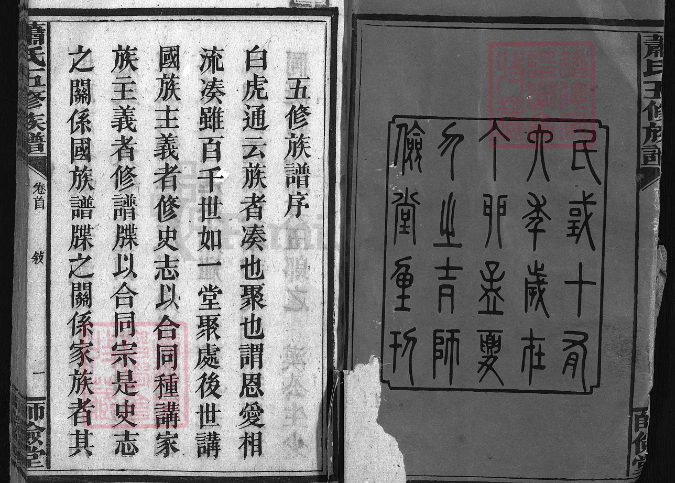 蕭氏五修族譜
師儉堂
民或十有
六季歲在
丁卯孟夏
月之吉師
儉堂重刊
五修族譜序
白虎通云族者凑也聚也謂恩愛相
流凑雖百千世如一堂聚處後世講
國族主義者修史志以合同種講家
族主義者修譜牒以合同宗是史志
之關係國族譜牒之關係家族者其
蕭氏五修族譜
卷首
敘
一
師儉堂